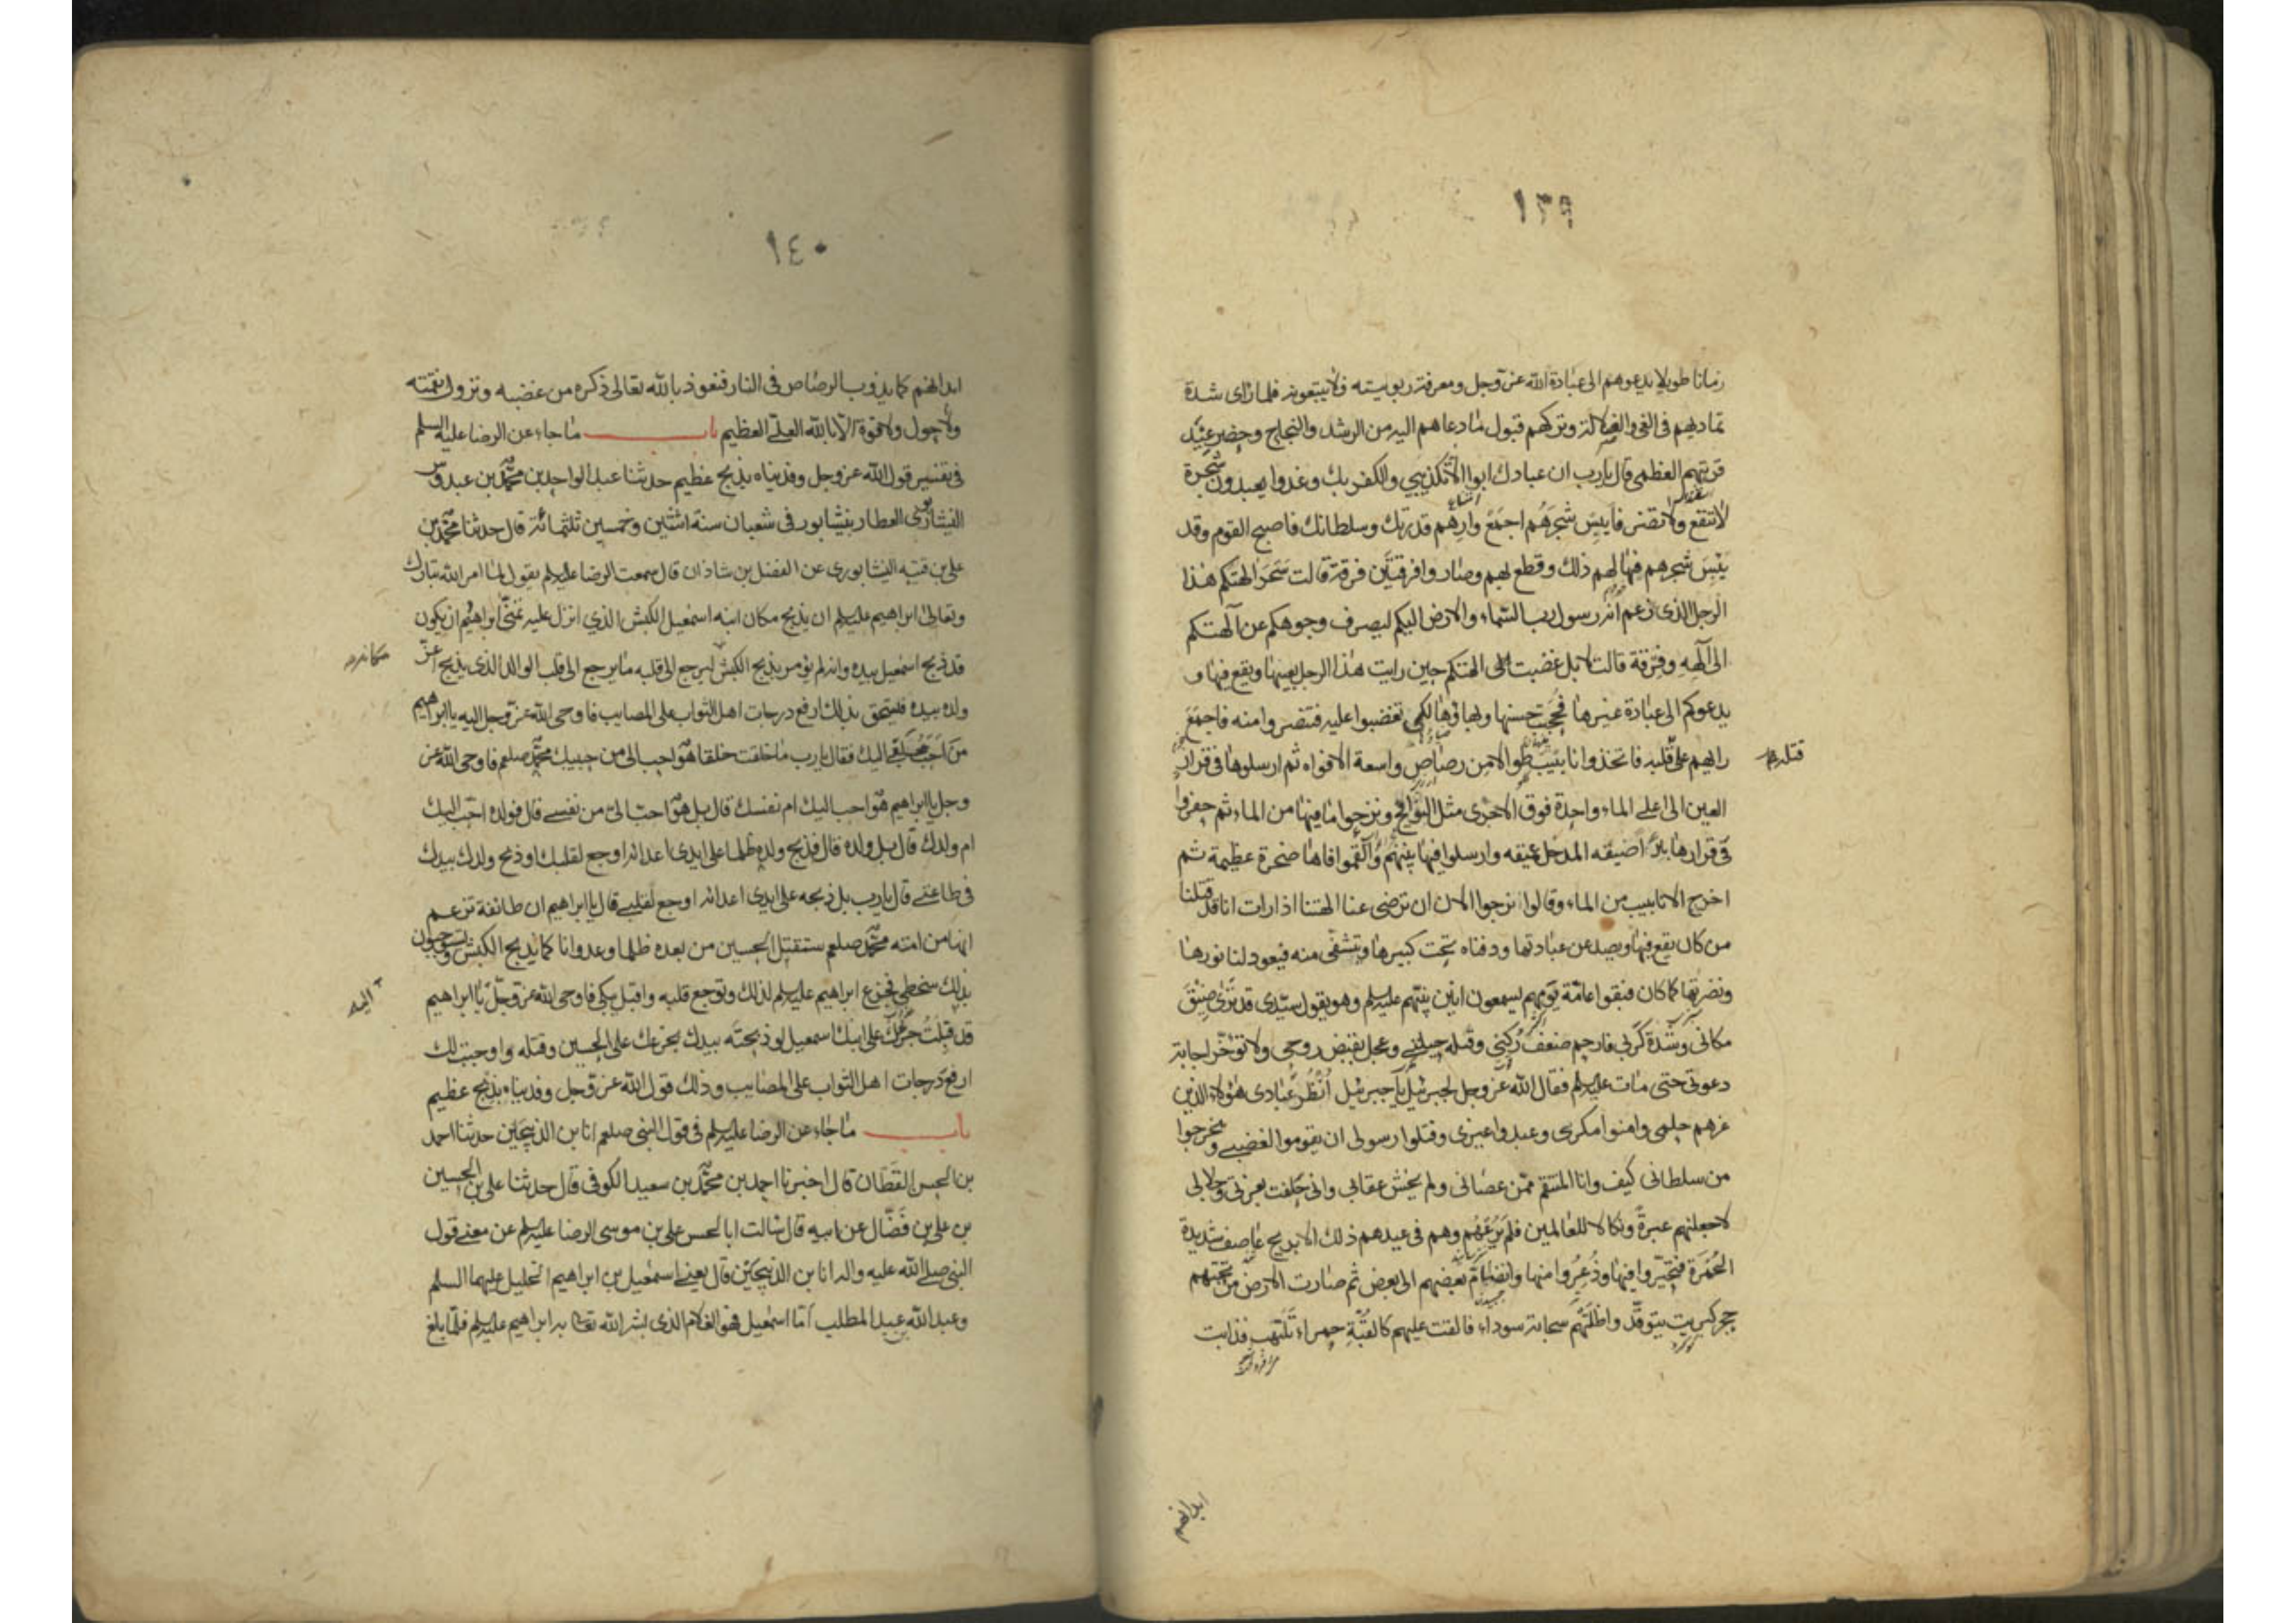 ١٣٩
زمانا طويلا يدعوهم الى عبادة الله عز وجل ومعرفة ربوبيته فلا يتبعونه فلما راى شدة
تماديهم فى الغى والضلالة وتركهم قبول ما دعاهم اليه من الرشد والنجاح وحضر عيد
قريتهم العظمى قال يا رب ان عبادك ابوا الا تكذيبي والكفر بك وغدوا يعبدون شجرة
لا تنفع ولا تضر فايبس شجرهم اجمع وارهم قدرتك وسلطانك فاصبح القوم وقد
يبس شجرهم فهالهم ذلك وقطع بهم وصاروا فرقتين فرقة قالت سحر الهتكم هذا
الرجل الذى زعم انه رسول رب السماء والارض اليكم ليصرف وجوهكم عن آلهتكم
الى الهه وفرقة قالت لا بل غضبت الهتكم حين رايت هذا الرجل يعيبها ويقع فيها و
يدعوكم الى عبادة غيرها فحجبت حسنها وبهاؤها لكى تغضبوا عليه فتنصروا منه فاجمع
رايهم على قتله فاتخذوا انابيب طوالا من رصاص واسعة الافواه ثم ارسلوها فى قرار
قتله
العين الى اعلى الماء واحدة فوق الاخرى مثل البرابخ ونزحوا ما فيها من الماء ثم حفروا
فى قرارها بئرا ضيقه المدخل عميقه وارسلوا فيها نبيهم والقموا فاها صخرة عظيمة ثم
اخرج الانابيب من الماء وقالوا نرجوا الان ان ترضى عنا الهتنا اذا رات انا قد قتلنا
من كان يقع فيها ويصد عن عبادتها ودفناه تحت كبيرها وتشفى منه فيعود لنا نورها
ونضرتها كما كان فبقوا عامة يومهم يسمعون انين نبيهم عليه السلم وهو يقول سيدى قد ترى ضيق
مكانى وشدة كربى فارحم ضعف ركنى وقلة حيلتى وعجل بقبض روحى ولا تؤخر اجابة
دعوتى حتى مات عليه السلم فقال الله عز وجل لجبرئيل يا جبرئيل انظر عبادى هؤلاء الذين
غرهم حلمى وامنوا مكرى وعبدوا غيرى وقتلوا رسولى ان يقوموا لغضبى ويخرجوا
من سلطانى كيف وانا المنتقم ممن عصانى ولم يخش عقابى وانى حلفت بعزتى وجلالى
لاجعلنهم عبرة ونكالا للعالمين فلم يرعهم وهم فى عيدهم ذلك الا بريح عاصف شديدة
الحمرة فتحيروا فيها وذعروا منها وانضم بعضهم الى بعض ثم صارت الارض من تحتهم
حجر كبريت يتوقد واظلتهم سحابة سوداء فالقت عليهم كالقبة حمراء تلتهب فذابت
ابدانهم
١٤٠
ابدانهم كما يذوب الرصاص فى النار فنعوذ بالله تعالى ذكره من غضبه ونزول نقمته
ولا حول ولا قوة الا بالله العلى العظيم باب ما جاء عن الرضا عليه السلم
فى تفسير قول الله عز وجل وفديناه بذبح عظيم حدثنا عبد الواحد بن محمد بن عبدوس
النيشابورى العطار بنيشابور فى شعبان سنة اثنتين وخمسين ثلثمائة قال حدثنا محمد بن
على بن قتيبه النيشابورى عن الفضل بن شاذان قال سمعت الرضا عليه السلم يقول لما امر الله تبارك
وتعالى ابراهيم عليه السلم ان يذبح مكان ابنه اسمعيل الكبش الذي انزل عليه تمنى ابراهيم ان يكون
قد ذبح اسمعيل بيده وانه لم يؤمر بذبح الكبش ليرجع الى قلبه ما يرجع الى قلب الوالد الذى يذبح اعز
مكانه
ولده بيده فيستحق بذلك ارفع درجات اهل الثواب على المصايب فاوحى الله عز وجل اليه يا ابراهيم
من احب خلقى اليك فقال يا رب ما خلقت خلقا هو احب الى من حبيبك محمد صلعم فاوحى الله عز
وجل يا ابراهيم هو احب اليك ام نفسك قال بل هو احب الى من نفسى قال فولده احب اليك
ام ولدك قال بل ولده قال فذبح ولده ظلما على ايدى اعدائه اوجع لقلبك او ذبح ولدك بيدك
فى طاعتى قال يا رب بل ذبحه على ايدى اعدائه اوجع لقلبى قال يا ابراهيم ان طائفة تزعم
انها من امته محمد صلعم ستقتل الحسين من بعده ظلما وعدوانا كما يذبح الكبش ويستوجبون
بذلك سخطى فجزع ابراهيم عليه السلم لذلك وتوجع قلبه واقبل يبكى فاوحى الله عز وجل يا ابراهيم
اليه
قد قبلت جزعك على ابنك اسمعيل لو ذبحته بيدك بجزعك على الحسين وقتله واوجبت لك
ارفع درجات اهل الثواب على المصايب وذلك قول الله عز وجل وفديناه بذبح عظيم
باب ما جاء عن الرضا عليه السلم فى قول النبى صلعم انا بن الذبيحين حدثنا احمد
بن الحسن القطان قال اخبرنا احمد بن محمد بن سعيد الكوفى قال حدثنا على بن الحسين
بن على بن فضال عن ابيه قال سالت ابا الحسن على بن موسى الرضا عليه السلم عن معنى قول
النبى صلى الله عليه واله انا بن الذبيحين قال يعنى اسمعيل بن ابراهيم الخليل عليهما السلم
وعبد الله عبد المطلب اما اسمعيل فهو الغلام الذى بشر الله تعالى به ابراهيم عليه السلم فلما بلغ